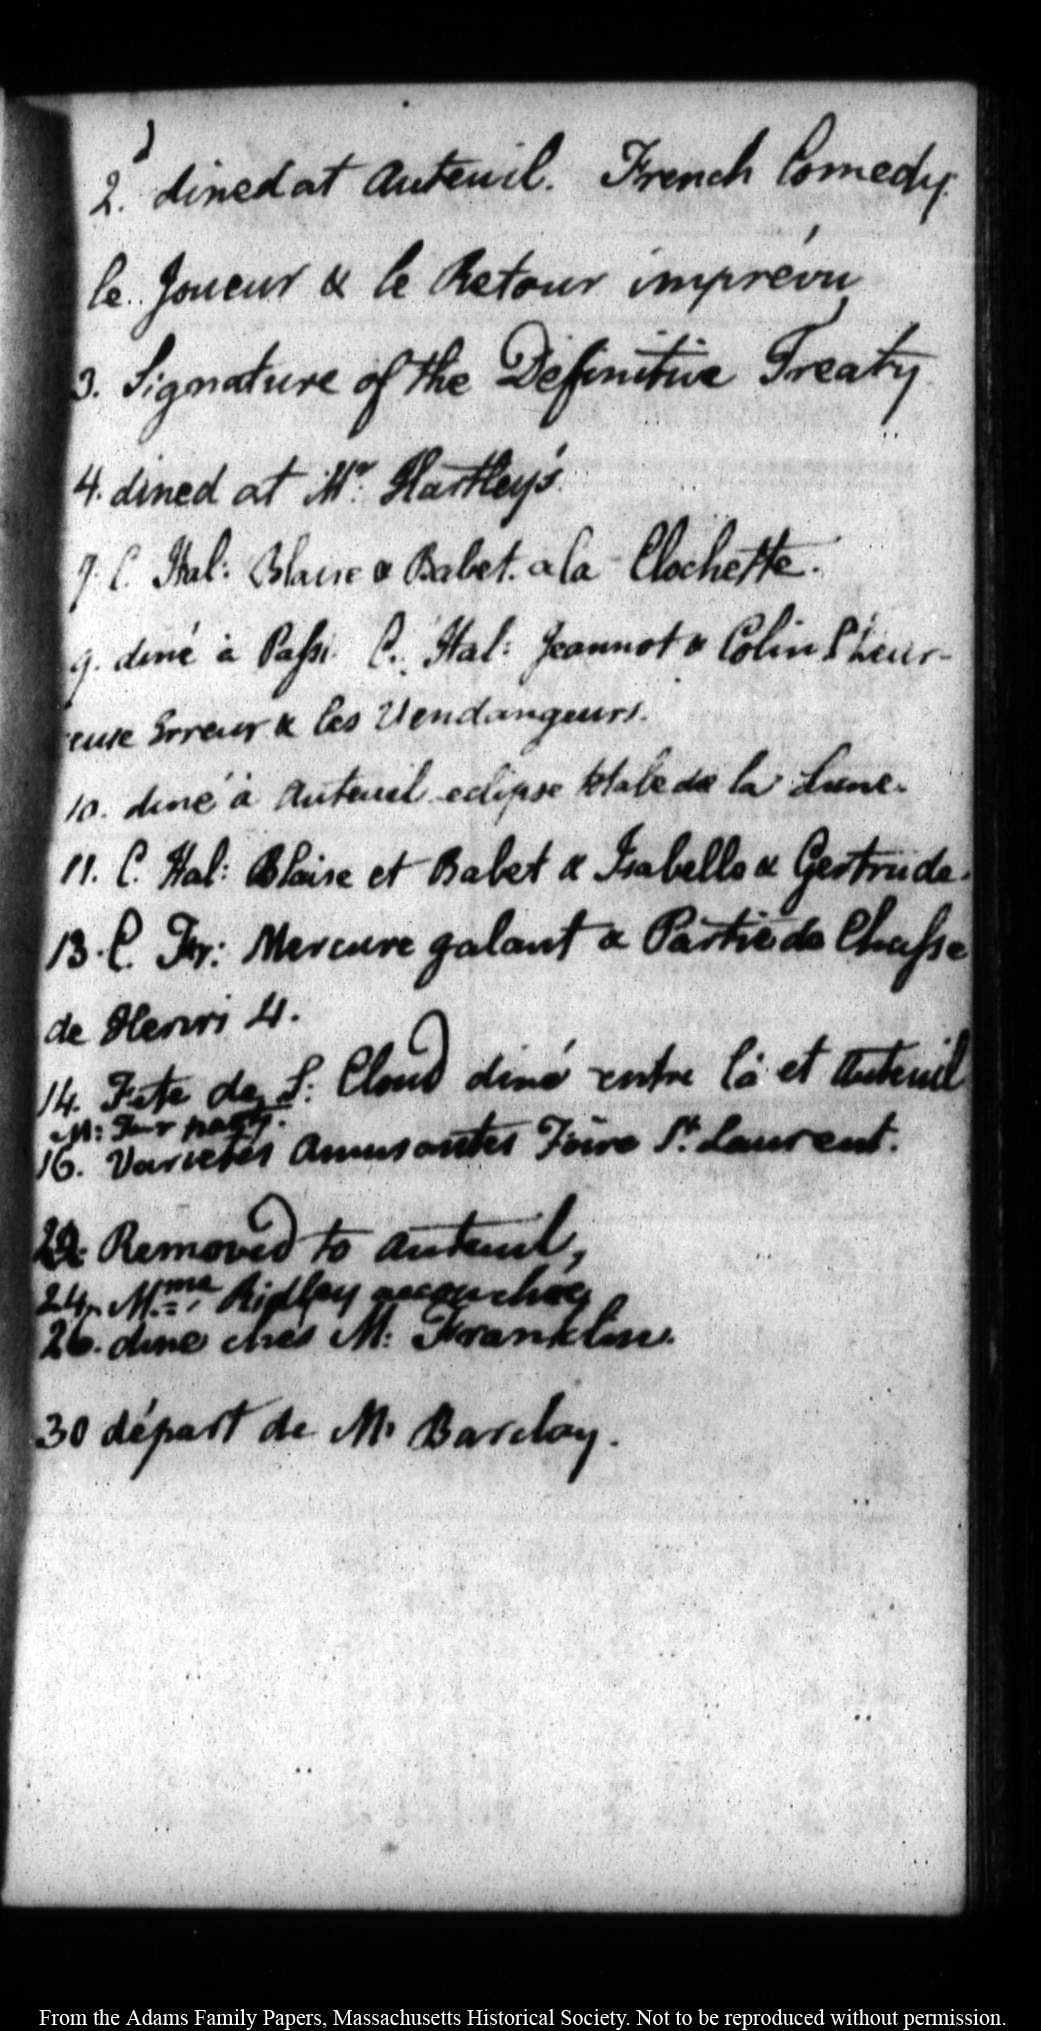 2. dined at Auteuil. French Comedy.
le Joueur & le Retour imprévu
3. Signature of the Definitive Treaty
4. dined at Mr. Hartley's
7. C. Ital: Blaise & Babet. a la Clochette.
9. diné à Passi. C. Ital: Jeannot & Colin l'heur-
euse Erreur & les Vendangeurs.
10. diné à Auteuil eclipse totale de la Lune.
11. C. Ital: Blaise et Babet & Isabelle & Gertrude.
13. C. Fr: Mercure galant & Partie de Chasse
de Henri 4.
14. Fete de S: Cloud diné entre là et Auteuil
M:
16. Varietés Amusantes Foire St. Laurent.
22. Removed to Auteuil,
24. Mme. Ridley accouchée
26. diné chés M: Franklin.
30 départ de M. Barclay.
From the Adams Family Papers, Massachusetts Historical Society. Not to be reproduced without permission.